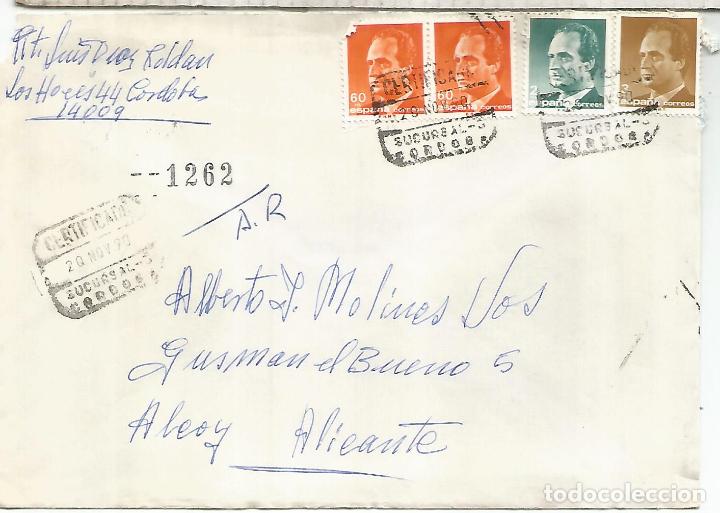 Rte Luis Diaz Roldan
Los Hoces 44 Cordoba
14009
60 españa correos
60 españa correos
2 españa correos
3 españa correos
CERTIFICADO
SUCURSAL-5
CORDOBA
SUCURSAL-5
CORDOBA
--1262
A.R
CERTIFICADO
20 NOV 90
SUCURSAL-5
CORDOBA
Alberto J. Molines Vos
Gusman el Bueno 5
Alcoy Alicante
todocoleccion
todocoleccion.net